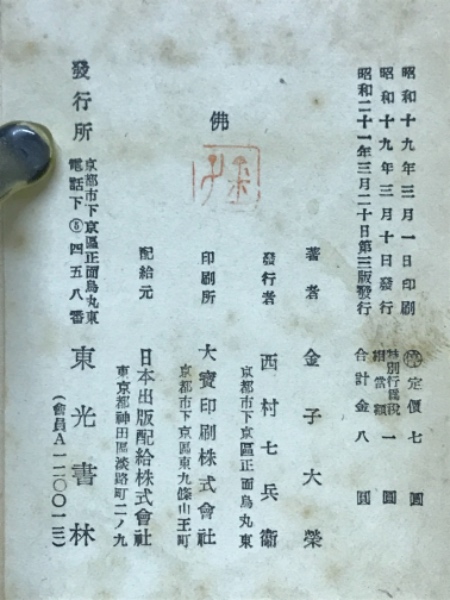 昭和十九年三月一日印刷
昭和十九年三月十日發行
昭和二十一年三月二十日第三版發行
定價七圓
特別行爲税相當額一圓
合計金八圓
佛
著者 金子大榮
發行者 西村七兵衞
京都市下京區正面烏丸東
印刷所 大寶印刷株式會社
京都市下京區東九條山王町
配給元 日本出版配給株式會社
東京都神田區淡路町二ノ九
發行所 京都市下京區正面烏丸東
電話下⑤四五八番
東光書林
(會員A一二〇〇一三)